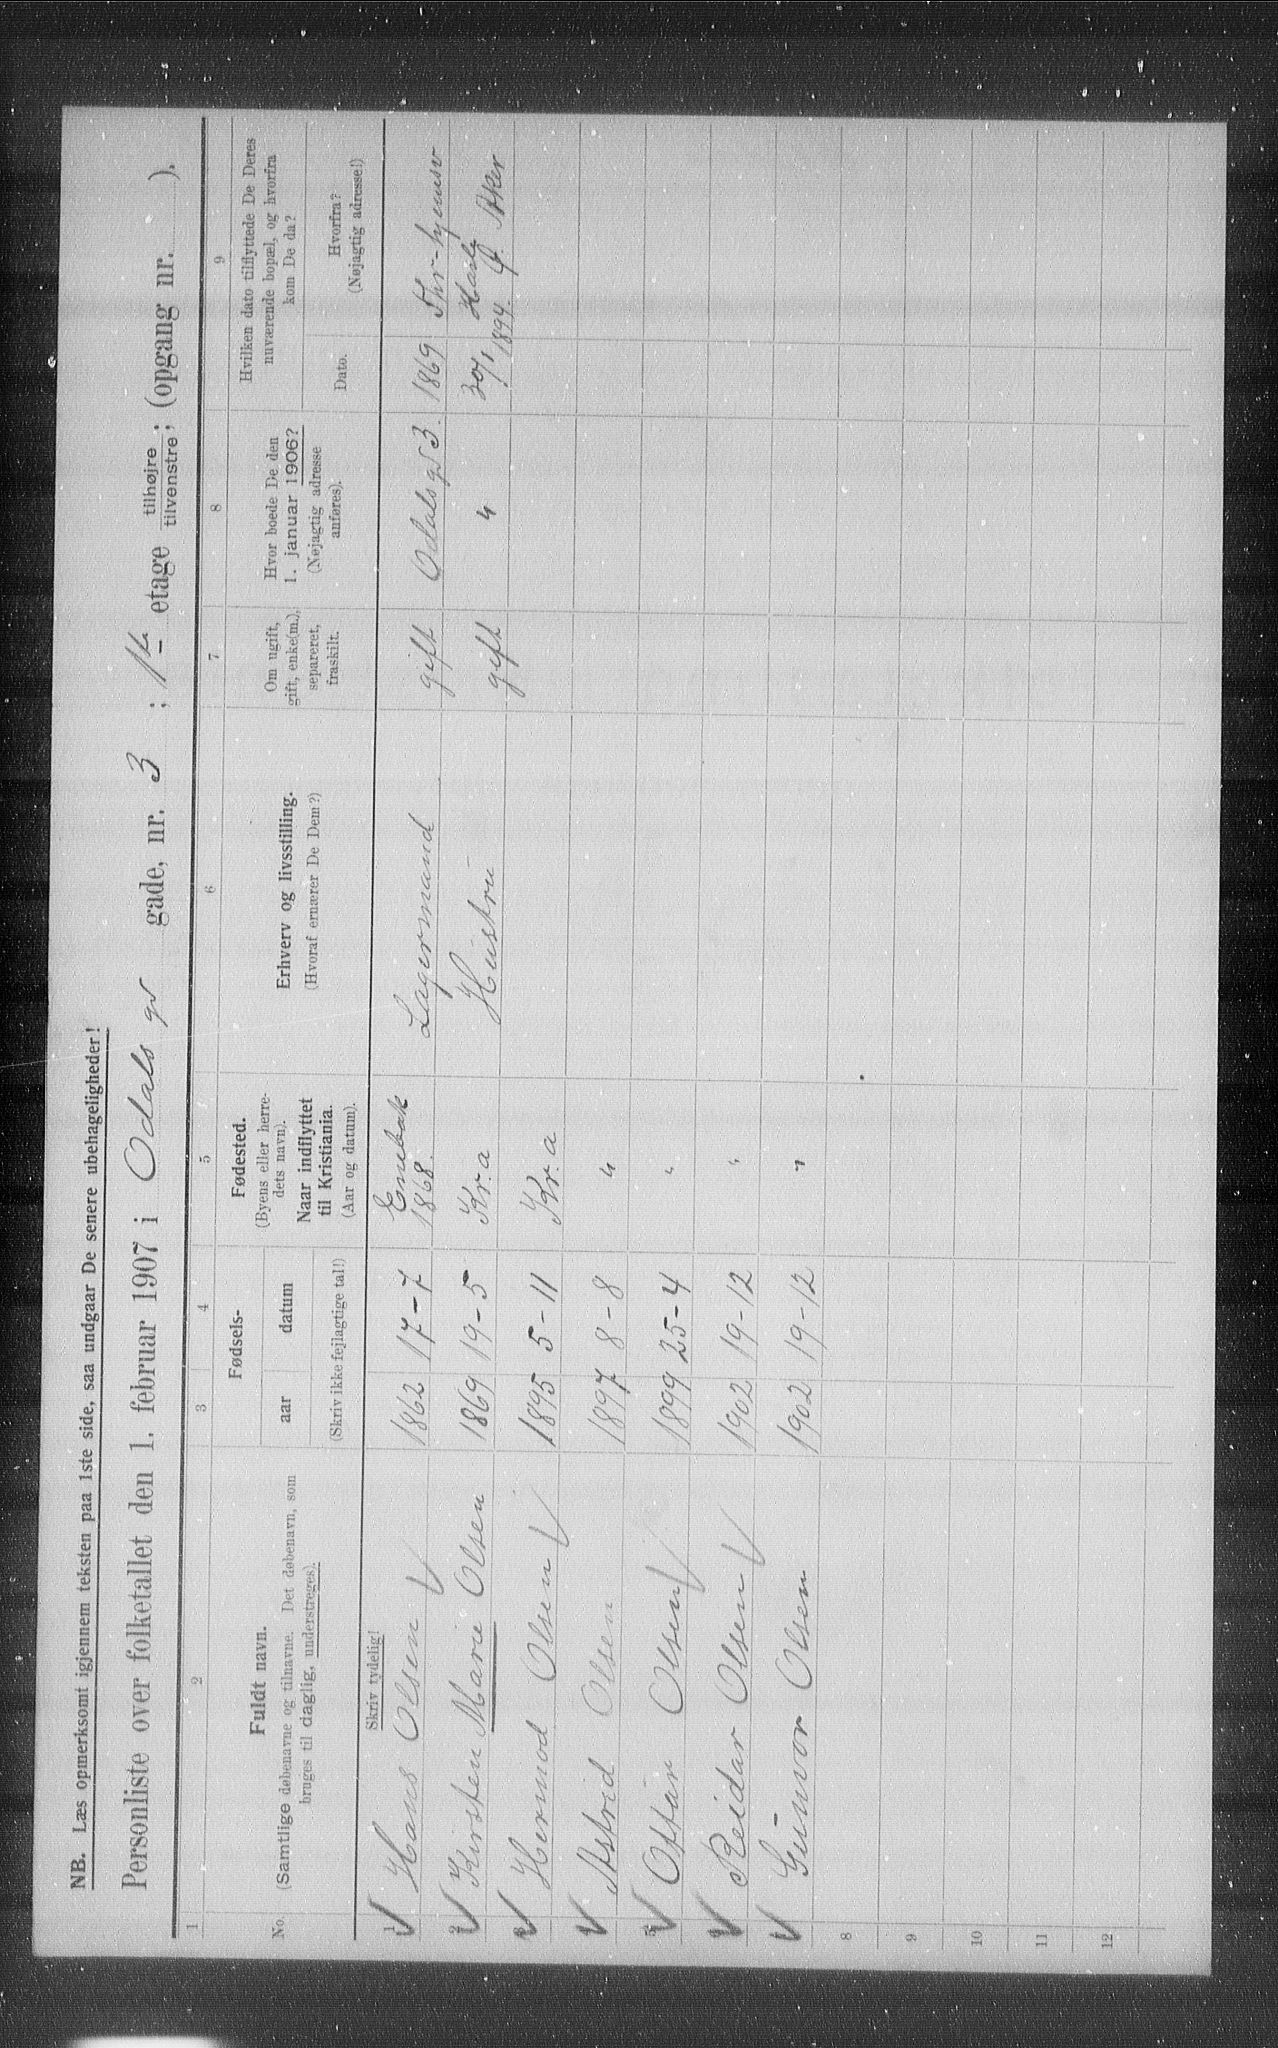 NB. Læs opmerksomt igjennem teksten paa 1ste side, saa undgaar De senere ubehageligheder!
Personliste over folketallet den 1. februar 1907 i Odals gd gade, nr. 3 ; 1ste etage tilhøjre tilvenstre; (opgang nr. ).
1 2 3 4 5 6 7 8 9
No.
Fuldt navn.
(Samtlige døbenavne og tilnavne. Det døbenavn, som
bruges til daglig, understreges).
Fødsels-
aar datum
(Skriv ikke fejlagtige tal!)
Fødested.
(Byens eller herre-
dets navn).
Naar indflyttet
til Kristiania.
(Aar og datum).
Erhverv og livsstilling.
(Hvoraf ernærer De Dem?)
Om ugift,
gift, enke(m.),
separeret,
fraskilt.
Hvor boede De den
1. januar 1906?
(Nøjagtig adresse
anføres).
Hvilken dato tilflyttede De Deres
nuværende bopæl, og hvorfra
kom De da?
Dato.
Hvorfra?
(Nøjagtig adresse!)
Skriv tydelig!
1 Hans Olsen 1862 17-7 Enebak 1868. Lagermand gift Odalsgd 3. 1869
2 Kirsten Marie Olsen 1869 19-5 Kr.a Hustru gift " 30/1 1894. Aker
Hermod Olsen 1895 5-11 Kr.a
Astrid Olsen 1897 8-8 "
5 Ottar Olsen 1899 25-4 "
Reidar Olsen 1902 19-12 "
Gunvor Olsen 1902 19-12 "
8
9
10
11
12